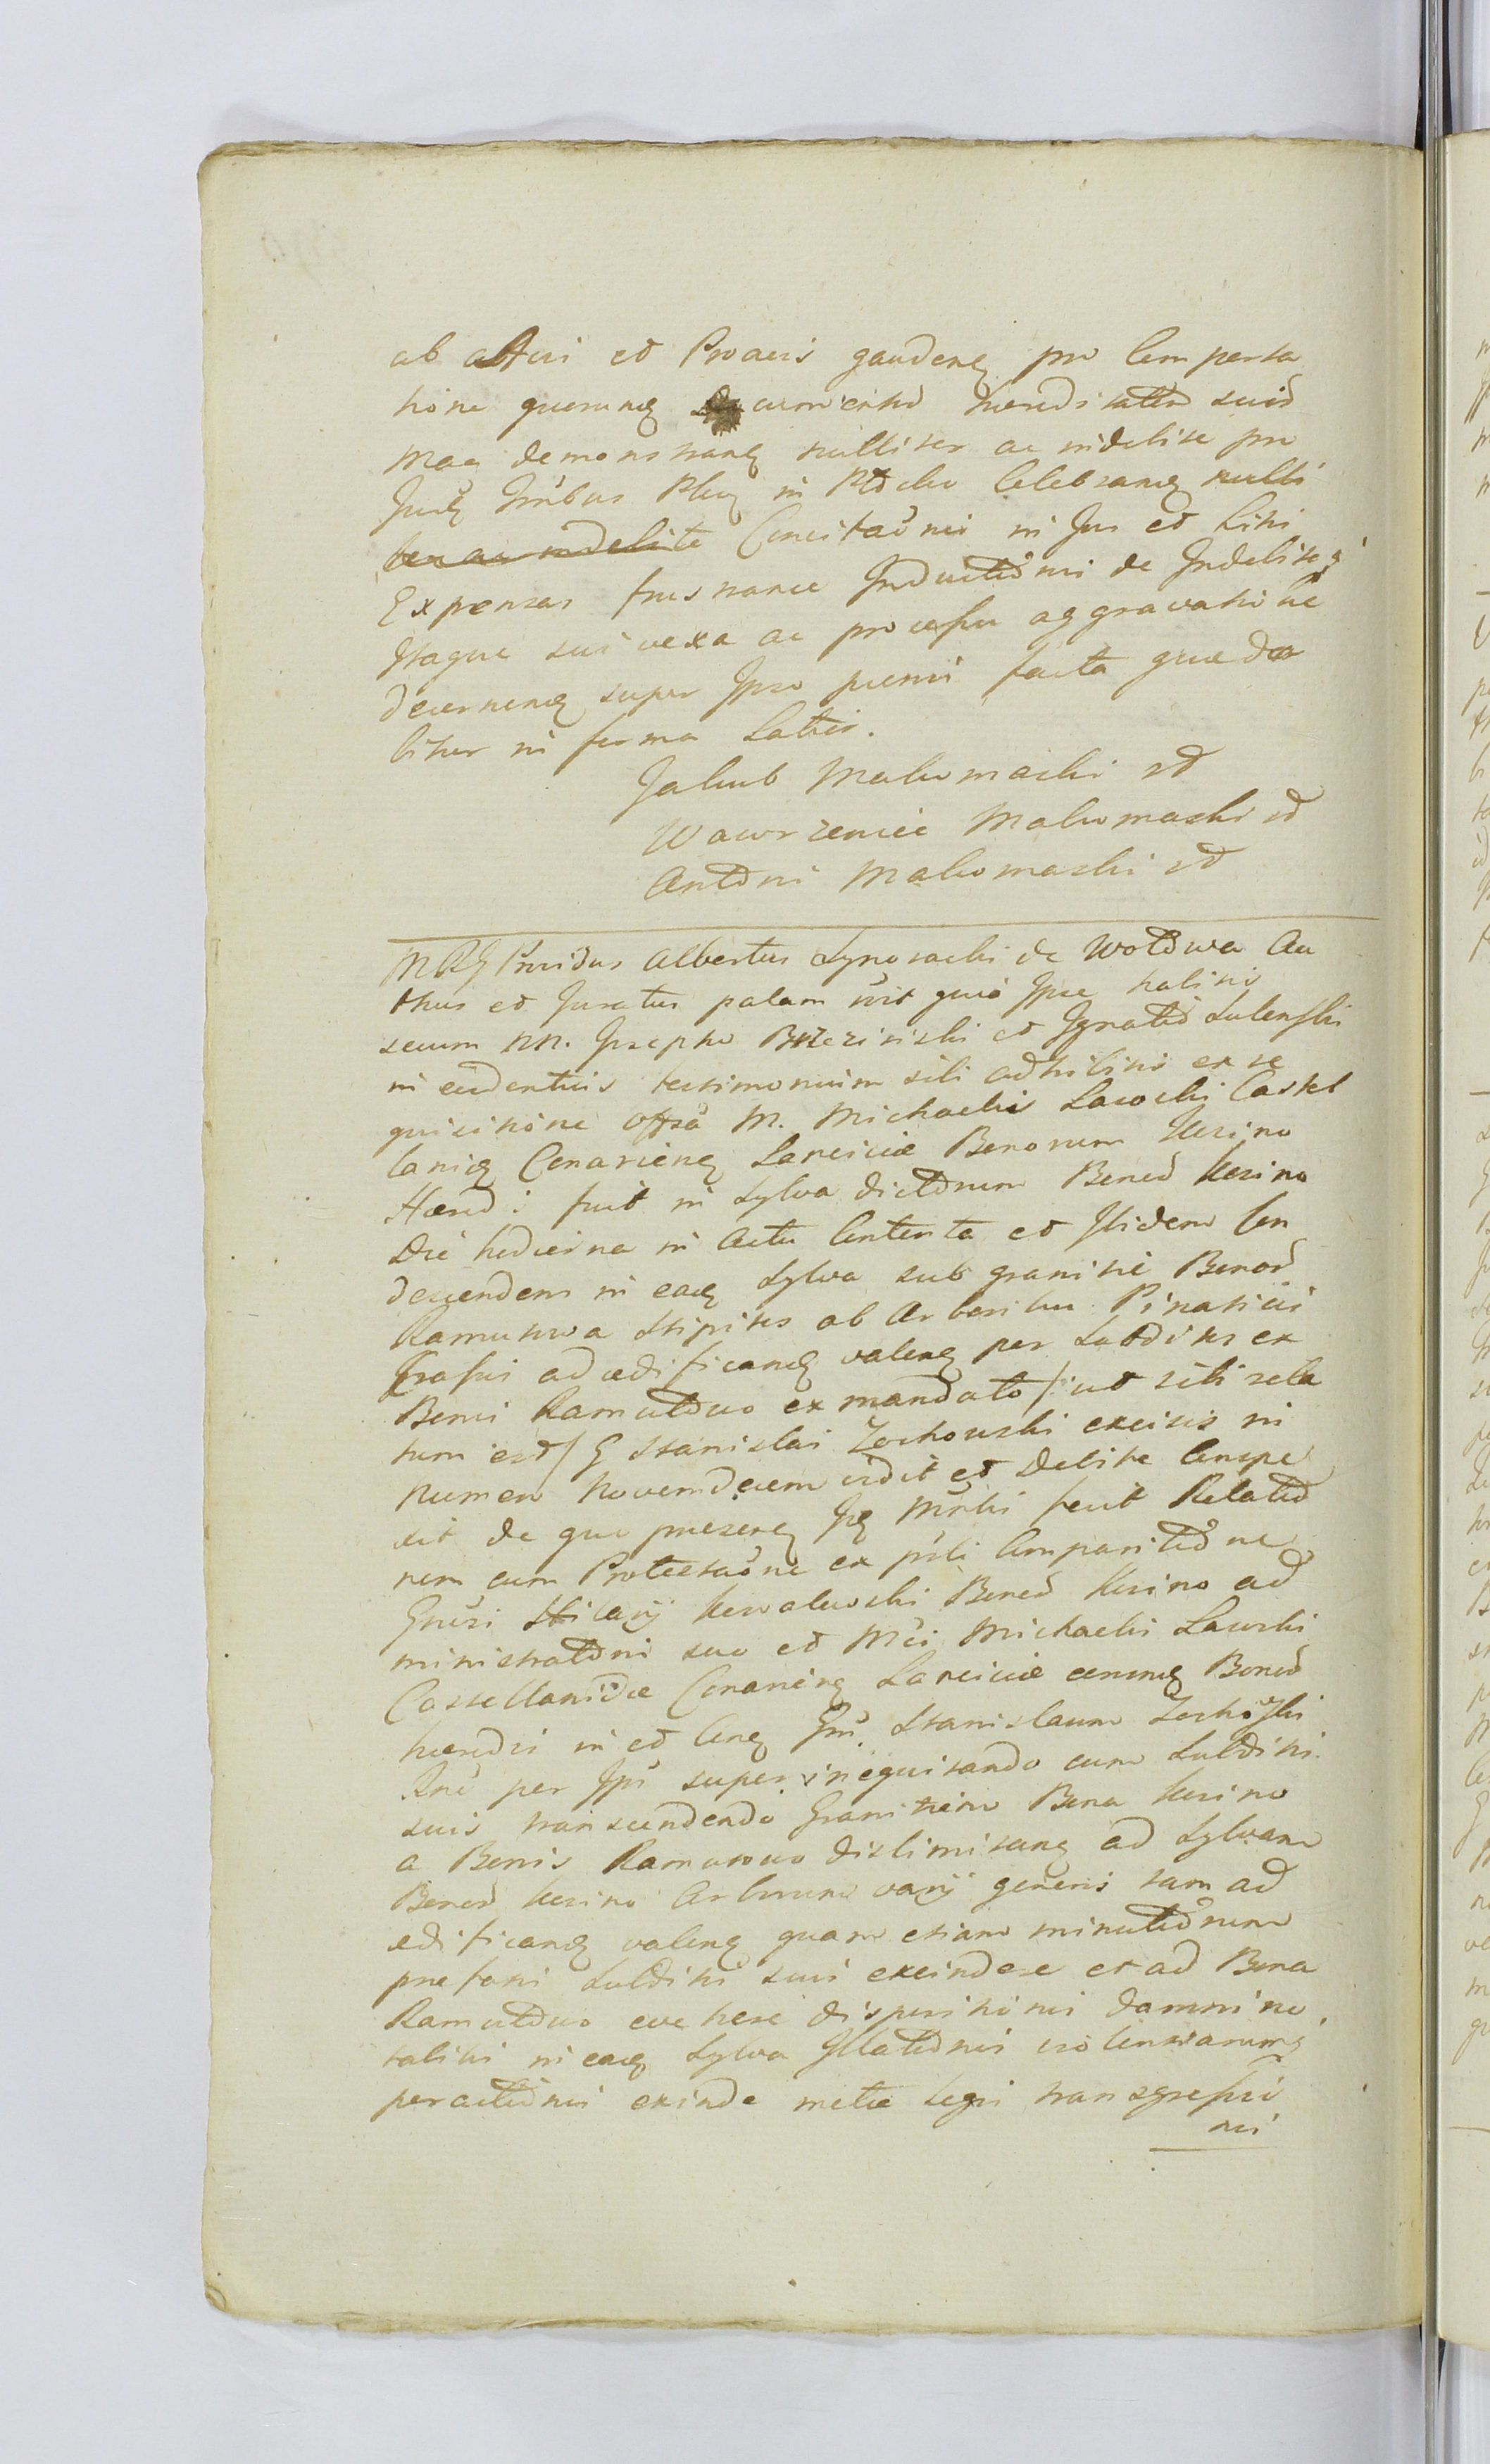 ab attavi et Proavis gaudenq pro Comporta
tione quorumq Documentord hereditatem suid
Mag demonstranq nulliter ac indebite pro
Judq Tribus Plocq in Plocko Celebranq nulli
ter ac indebite Concitaonis in Jus et Litis
Expensas frustranee Inductionis de Indebite q
Itaque sui vexa ac processu aggravatione
decernenq super Ipso premis facta que da
bitur in forma Latiis.
Jakub Malowaski
Wawrzeniec Malomaski
Antoni Malomaski
MRG Providus Albertus Synoracki de Wotowa Au
thus et Juratus palam quia Ipse habitis
secum NN. Josepho Brzezinski et Ignatio Lulenski
in evidentius testimonium sibi adhibitis ex re
quisitione Offsa M. Michaelis Lasocki Castel
laniq Conarienq Lanciciæ Bonorum Kosino
Hæred: fuit in Sylva dictorum Bonord Kosino
Die hodierna in Actu Contenta et Ibidem Con
descendens in eadq Sylva sub granitie Bonord
Ramutowo Stipites ab Arboribus Pinaticis
Grossis ad ædificandq valenq per Subditos ex
Bonis Ramutowo ex mandato /: ut sibi rela
tum est / G Stanislai Zochowski excisis in
Numero Novemdecem vidit et Debite Conspe
xit de quo præsenq fecit Relatio
nem cum Protestaone ex parti Comparitione
Gnrsi Hilarij Kowalewski Bonord Kosino ad
ministratoris suo et Mci Michaelis Lasocki
Castellanidæ Conarienq Lanciciæ eorumq Bonord
hæredis in et Conq Gnm. Stanislaum Zochoski
Rne per Ips super inequitando cum Subditis
suis transcendendo Granitiem Bona Kosino
a Bonis Ramutowo dislimitanq ad Sylvam
Bonord Kosino Arborum varij generis tam ad
ædificandq valenq quam etiam minutiorum
prefatis Subditis suis excindere et ad Bona
Ramutowo evehere dispositionis damni no
tabilis in eadq Sylva Illationis violentiarumq
peractionis exinde metæ Legis transgressio
nis